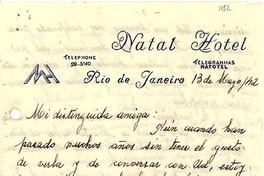 1182
Natal Hotel
TELEPHONE
TELEGRAMMAS
NATOTEL
Rio de Janeiro 13 de Mayo/42
Mi distinguida amiga:
Aún cuando han
pasado muchos años sin tener el gusto
de verla y de conversar con Ud, estoy